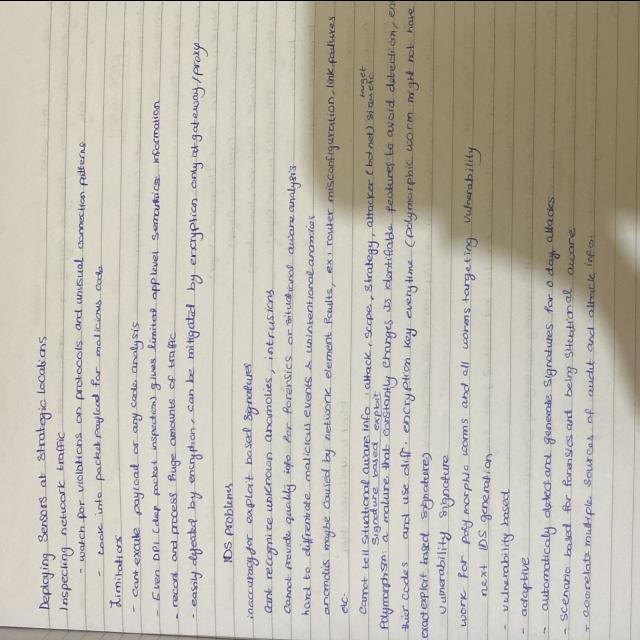 Deploying Sensors at Strategic locations
Inspecting network traffic
- watch for violations on protocols and unusual connection patterns
- Look into packet payload for malicious code
Limitations
- Cant execute payload or any code analysis
- Even DPI (deep packet inspection) gives limited app level semantics information
- record and process huge amounts of traffic
- easily defeated by encryption, can be mitigated by encryption only at gateway/proxy
IDS Problems
inaccuracy for exploit based signatures
Cant recognize unknown anomalies, intrusions
Cannot provide quality info for forensics or situational aware analysis
hard to differentiate malicious events & unintentional anomalies
anomalies maybe caused by network element faults, ex: router misconfiguration, link failures
etc.
Cannot tell situational aware info: attack, scope, strategy, attacker (botnet) size, target
Signature based exploit
Polymorphism: a malware that constantly changes its identifiable features to avoid detection,
their codes and use diff. encryption key everytime (polymorphic worm might not have
exact exploit based signature)
Vulnerability Signature
work for polymorphic worms and all worms targeting vulnerability
next IDS generation
- vulnerability based
- adaptive
- automaticaly detect and generate signatures for 0 day attacks
- scenario based for forensics and being situational aware
- correlate multiple sources of audit and attack info.